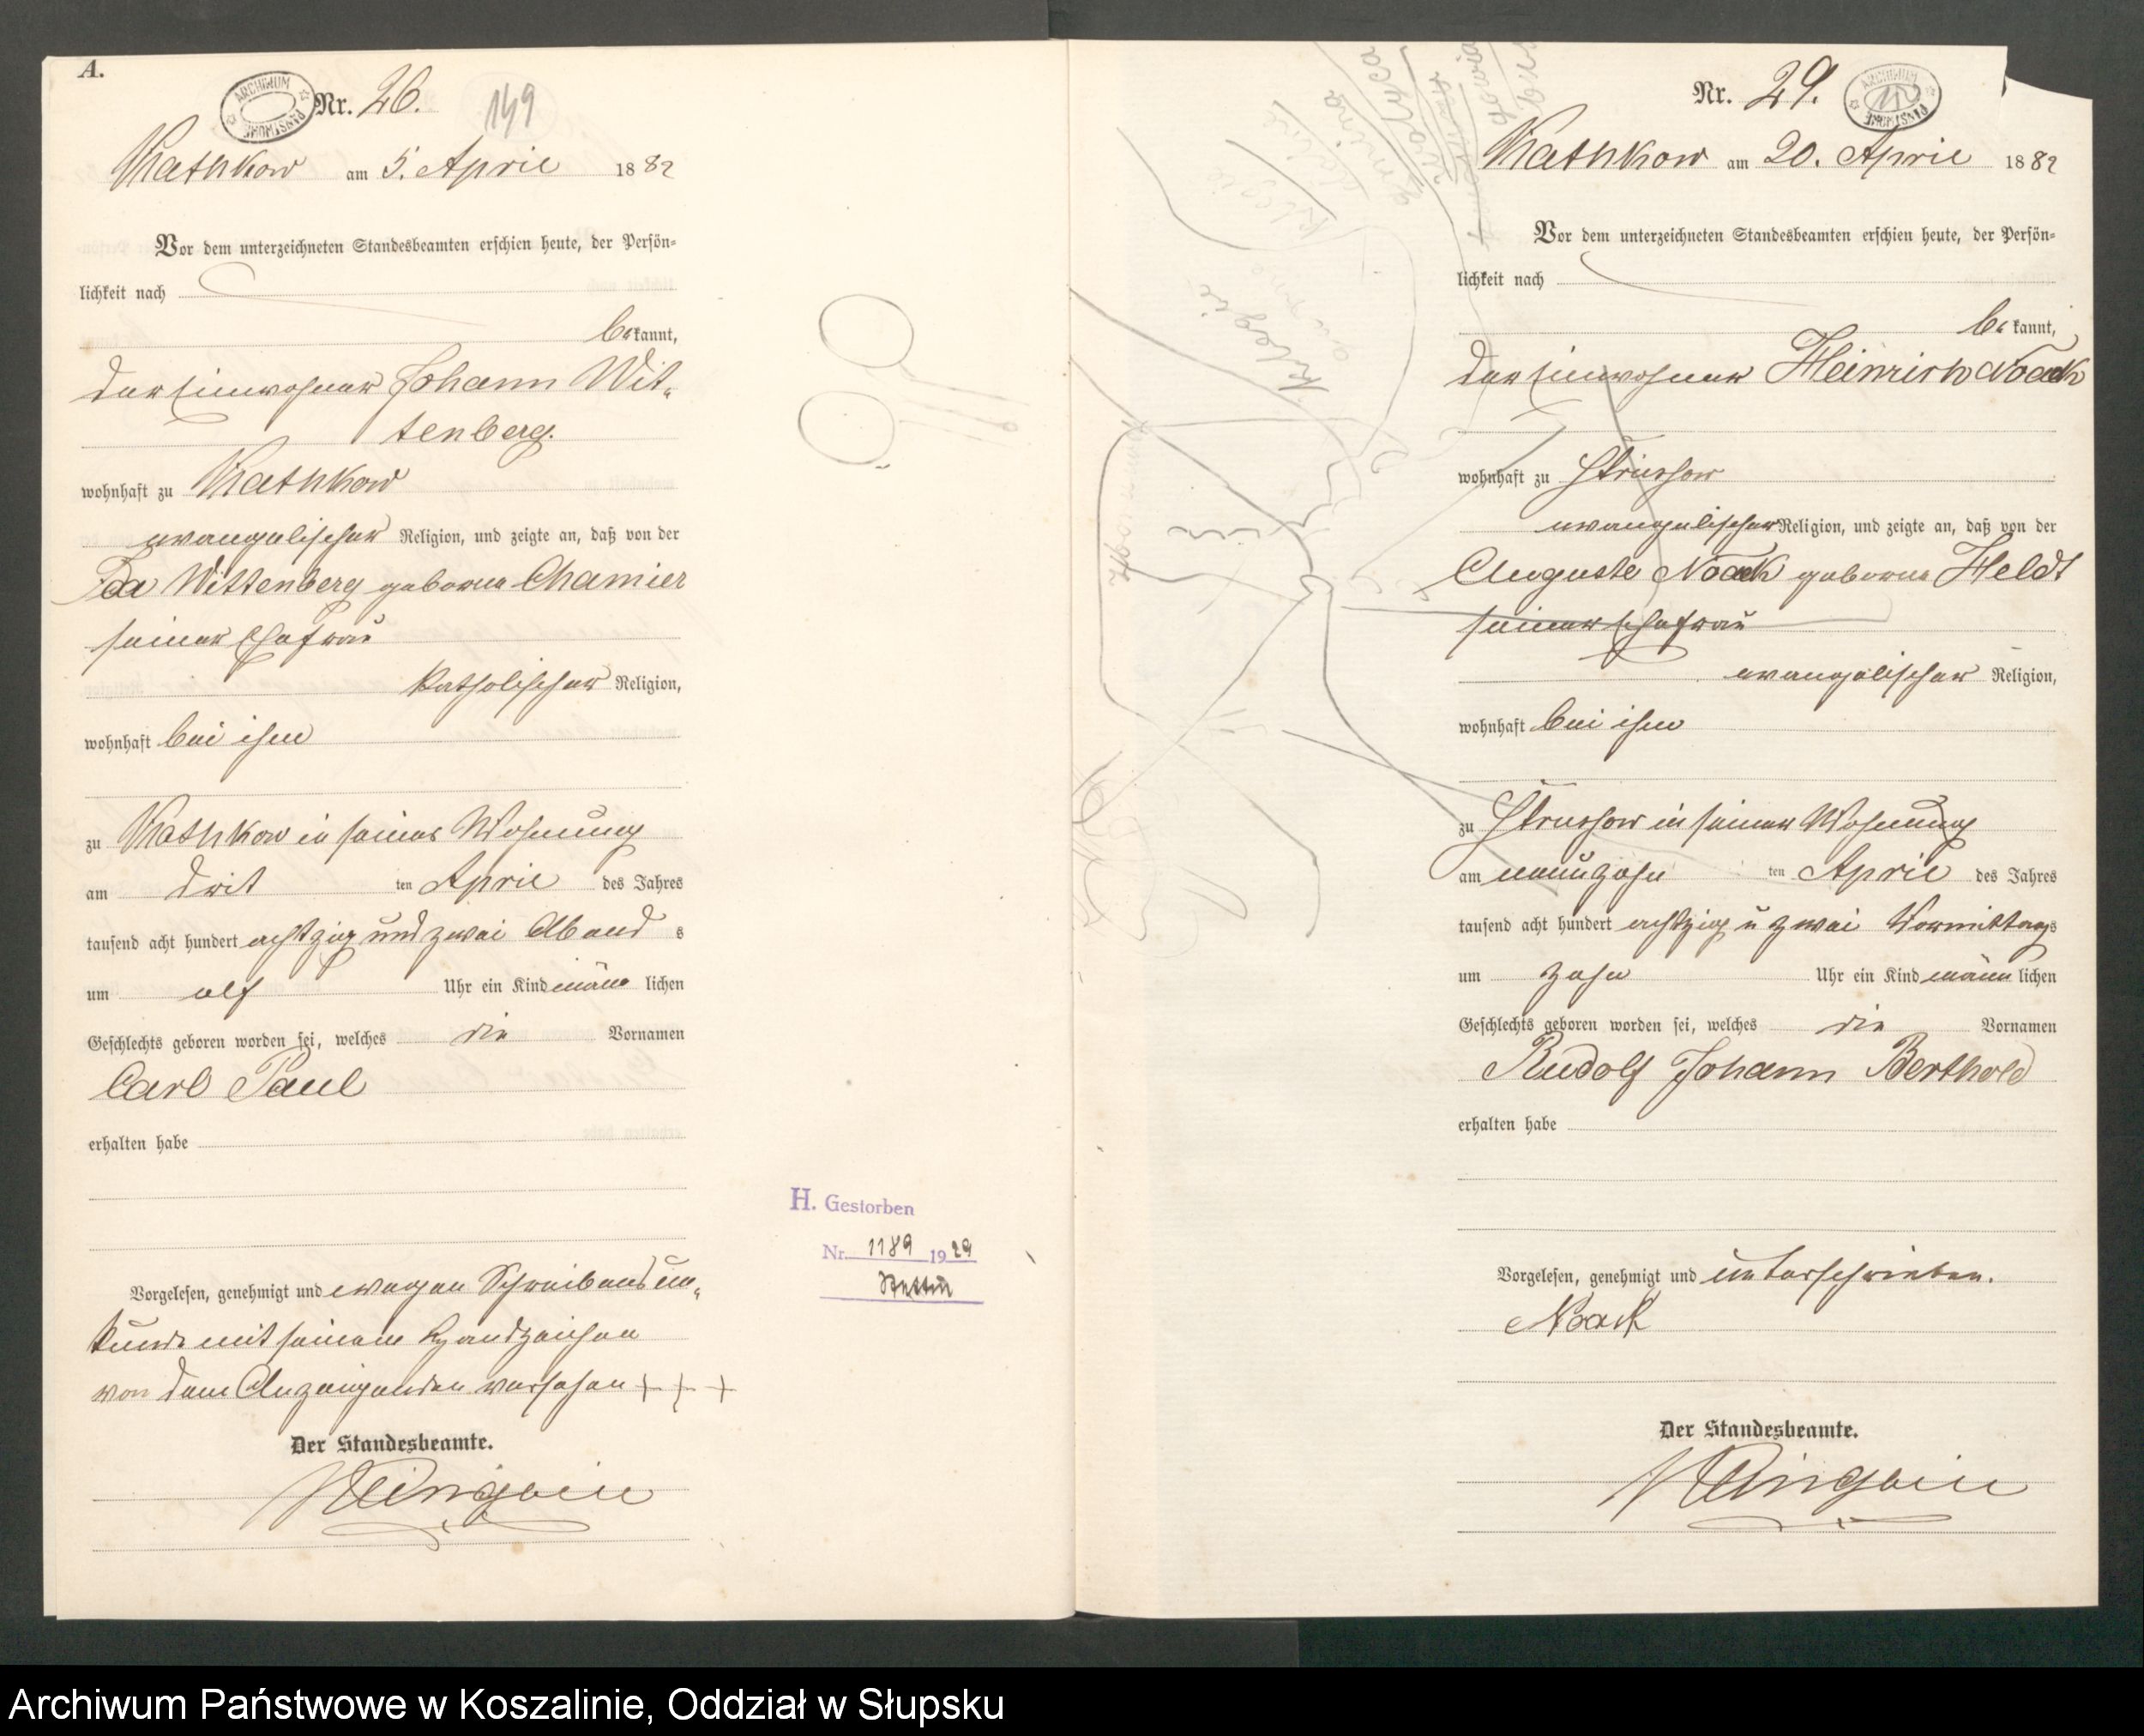 A.
Nr. 26.
149
ARCHIWUM PAŃSTWOWE
Kathkow am 5. April 1882
Vor dem unterzeichneten Standesbeamten erschien heute, der Persön-
lichkeit nach
bekannt,
der Einwohner Johann Wit-
tenberg.
wohnhaft zu Kathkow
evangelischer Religion, und zeigte an, daß von der
Ida Wittenberg geborne Chamier
seiner Ehefrau
katholischer Religion,
wohnhaft bei ihm
zu Kathkow in seiner Wohnung
am drit ten April des Jahres
tausend acht hundert achtzig und zwei Abend s
um elf Uhr ein Kind männ lichen
Geschlechts geboren worden sei, welches die Vornamen
Carl Paul
erhalten habe
Vorgelesen, genehmigt und wegen Schreibensun-
kunde mit seinem Handzeichen
von dem Anzeigenden versehen + + +
Der Standesbeamte.
H. Gestorben
Nr. 1189 1929
Stettin
Nr. 29.
ARCHIWUM PAŃSTWOWE
Kathkow am 20. April 1882
Vor dem unterzeichneten Standesbeamten erschien heute, der Persön-
lichkeit nach
bekannt,
der Einwohner Heinrich Noack
wohnhaft zu Strussow
evangelischer Religion, und zeigte an, daß von der
Auguste Noack geborne Heldt
seiner Ehefrau
evangelischer Religion,
wohnhaft bei ihm
zu Strussow in seiner Wohnung
am neunzehn ten April des Jahres
tausend acht hundert achtzig u zwei Vormittags
um zehn Uhr ein Kind männ lichen
Geschlechts geboren worden sei, welches die Vornamen
Rudolf Johann Berthold
erhalten habe
Vorgelesen, genehmigt und unterschrieben.
Noack
Der Standesbeamte.
Archiwum Państwowe w Koszalinie, Oddział w Słupsku